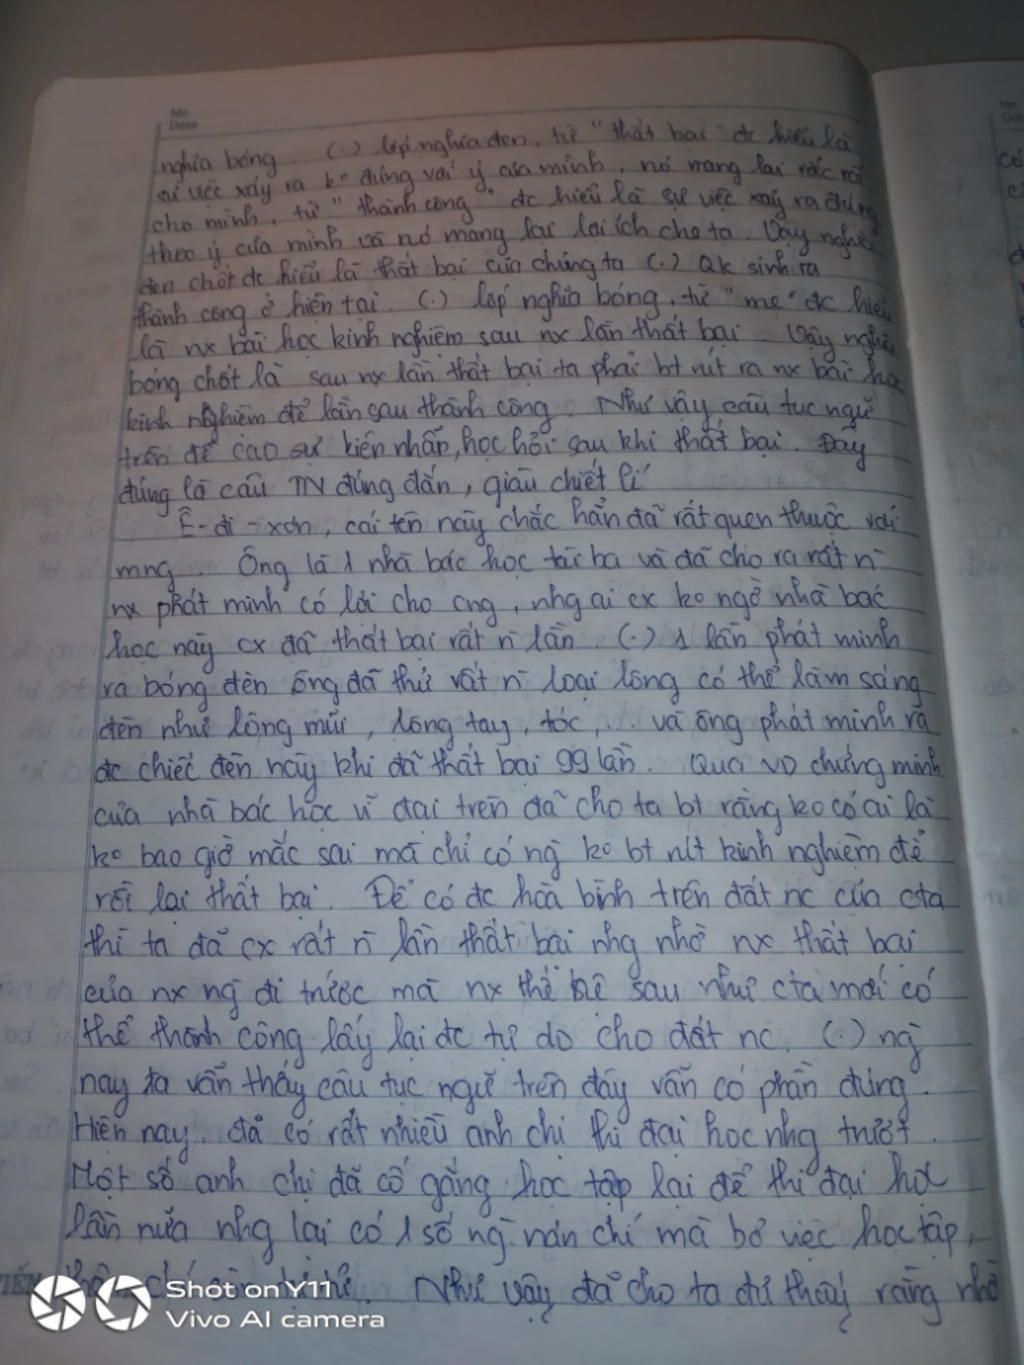 No
Date
nghĩa bóng. (.) lớp nghĩa đen, từ "thất bại" đc hiểu là
sự việc xảy ra ko đúng với ý của mình, nó mang lại rắc rối
cho mình, từ "thành công" đc hiểu là sự việc xảy ra đúng
theo ý của mình và nó mang lại lợi ích cho ta. Vậy nghĩa
đen chốt đc hiểu là thất bại của chúng ta (.) Qk sinh ra
thành công ở hiện tại. (.) lớp nghĩa bóng, từ "mẹ" đc hiểu
là nx bài học kinh nghiệm sau nx lần thất bại. Vậy nghĩa
bóng chốt là sau nx lần thất bại ta phải bt rút ra nx bài học
kinh nghiệm để lần sau thành công. Như vậy câu tục ngữ
trên đề cao sự kiên nhẫn, học hỏi sau khi thất bại. Đây
đúng là câu TN đúng đắn, giàu chiết lí
Ê-đi-xơn, cái tên này chắc hẳn đã rất quen thuộc với
mng. Ông là 1 nhà bác học tài ba và đã cho ra rất n`
nx phát minh có lời cho cng, nhg ai cx ko ngờ nhà bác
học này cx đã thất bại rất n` lần. (.) 1 lần phát minh
ra bóng đèn ông đã thử rất n` loại lông có thể làm sáng
đèn như lông mũi, lông tay, tóc,... và ông phát minh ra
đc chiếc đèn này khi đã thất bại 99 lần. Qua VD chứng minh
của nhà bác học vĩ đại trên đã cho ta bt rằng ko có ai là
ko bao giờ mắc sai mà chỉ có ng` ko bt rút kinh nghiệm để
rồi lại thất bại. Để có đc hoà bình trên đất nc của cta
thì ta đã cx rất n` lần thất bại nhg nhờ nx thất bại
của nx ng` đi trước mà nx thế hệ sau như cta mới có
thể thành công lấy lại đc tự do cho đất nc. (.) ng`
nay ta vẫn thấy câu tục ngữ trên đây vẫn có phần đúng.
Hiện nay, đã có rất nhiều anh chị thi đại học nhg trượt.
Một số anh chị đã cố gắng học tập lại để thi đại học
lần nữa nhg lại có 1 số ng` nản chí mà bỏ việc học tập,
Như vậy đã cho ta đủ thấy rằng nhờ
Shot on Y11
Vivo AI camera